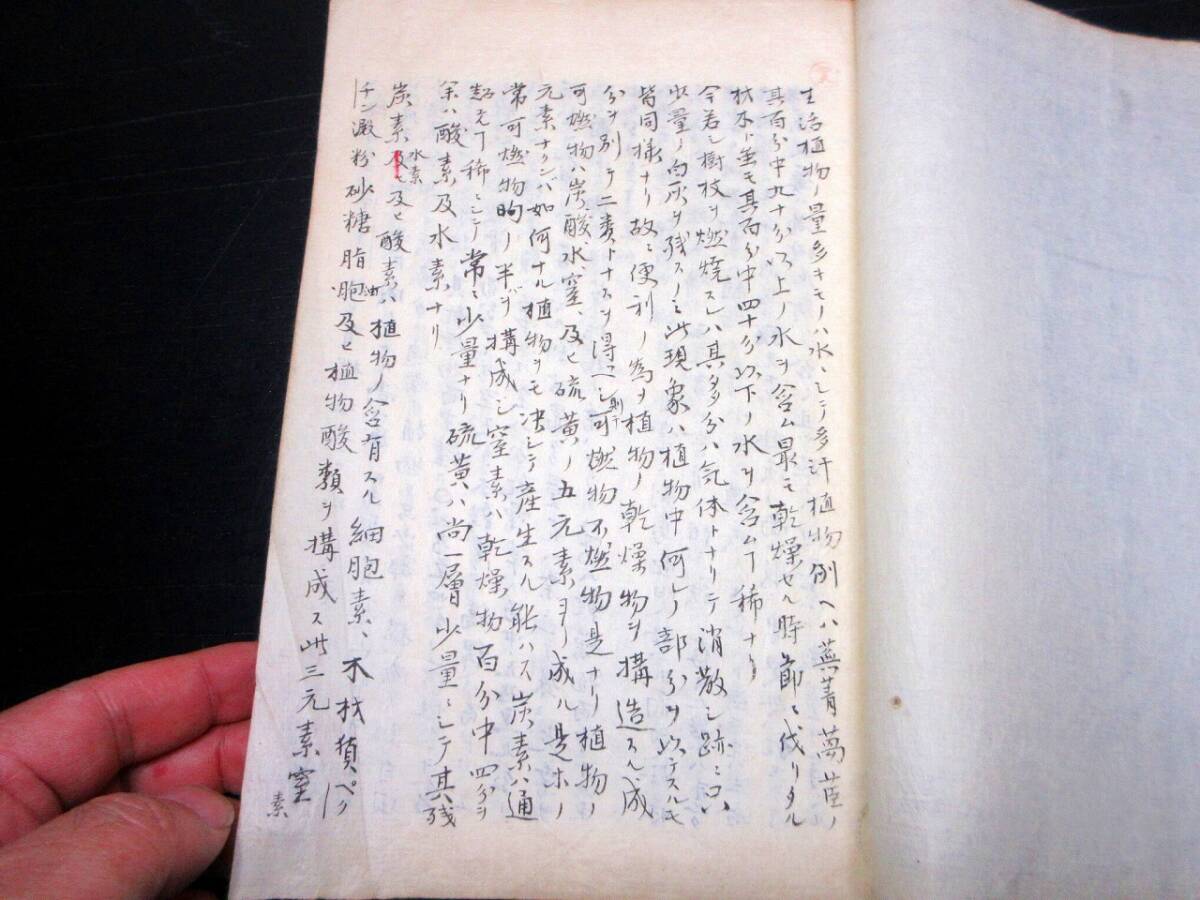 生活植物ノ量多キモノハ水ニシテ多汁植物例ヘハ蕪菁萵苣ノ
其百分中九十分以上ノ水ヲ含ム最モ乾燥セル時節ニ伐リタル
材木ト雖モ其百分中四十分以下ノ水ヲ含ムヿ稀ナリ
今若シ樹枝ヲ燃焼スレハ其多分ハ気体トナリテ消散シ跡ニハ
少量ノ白灰ヲ残スノミ此現象ハ植物中何レノ部分ヲ以テスルモ
皆同様ナリ故ニ便利ノ為メ植物ノ乾燥物ヲ構造スル成
分ヲ別テ二类トナスヲ得ヘシ則チ可燃物不燃物是ナリ植物ノ
可燃物ハ炭、酸、水、窒、及ヒ硫黄ノ五元素ヨリ成ル是ホノ
元素ナクンバ如何ナル植物ヲモ决シテ産生スル能ハス炭素ハ通
常可燃物ノ半ヲ構成シ窒素ハ乾燥物百分中四分ヲ
超ユルヿ稀ニシテ常ニ少量ナリ硫黄ハ尚一層少量ニシテ其残
余ハ酸素及水素ナリ
炭素水素及ヒ酸素ハ植物ノ含有スル細胞素、木材質ペク
チン澱粉砂糖脂油胞及ヒ植物酸類ヲ構成ス此三元素窒
素